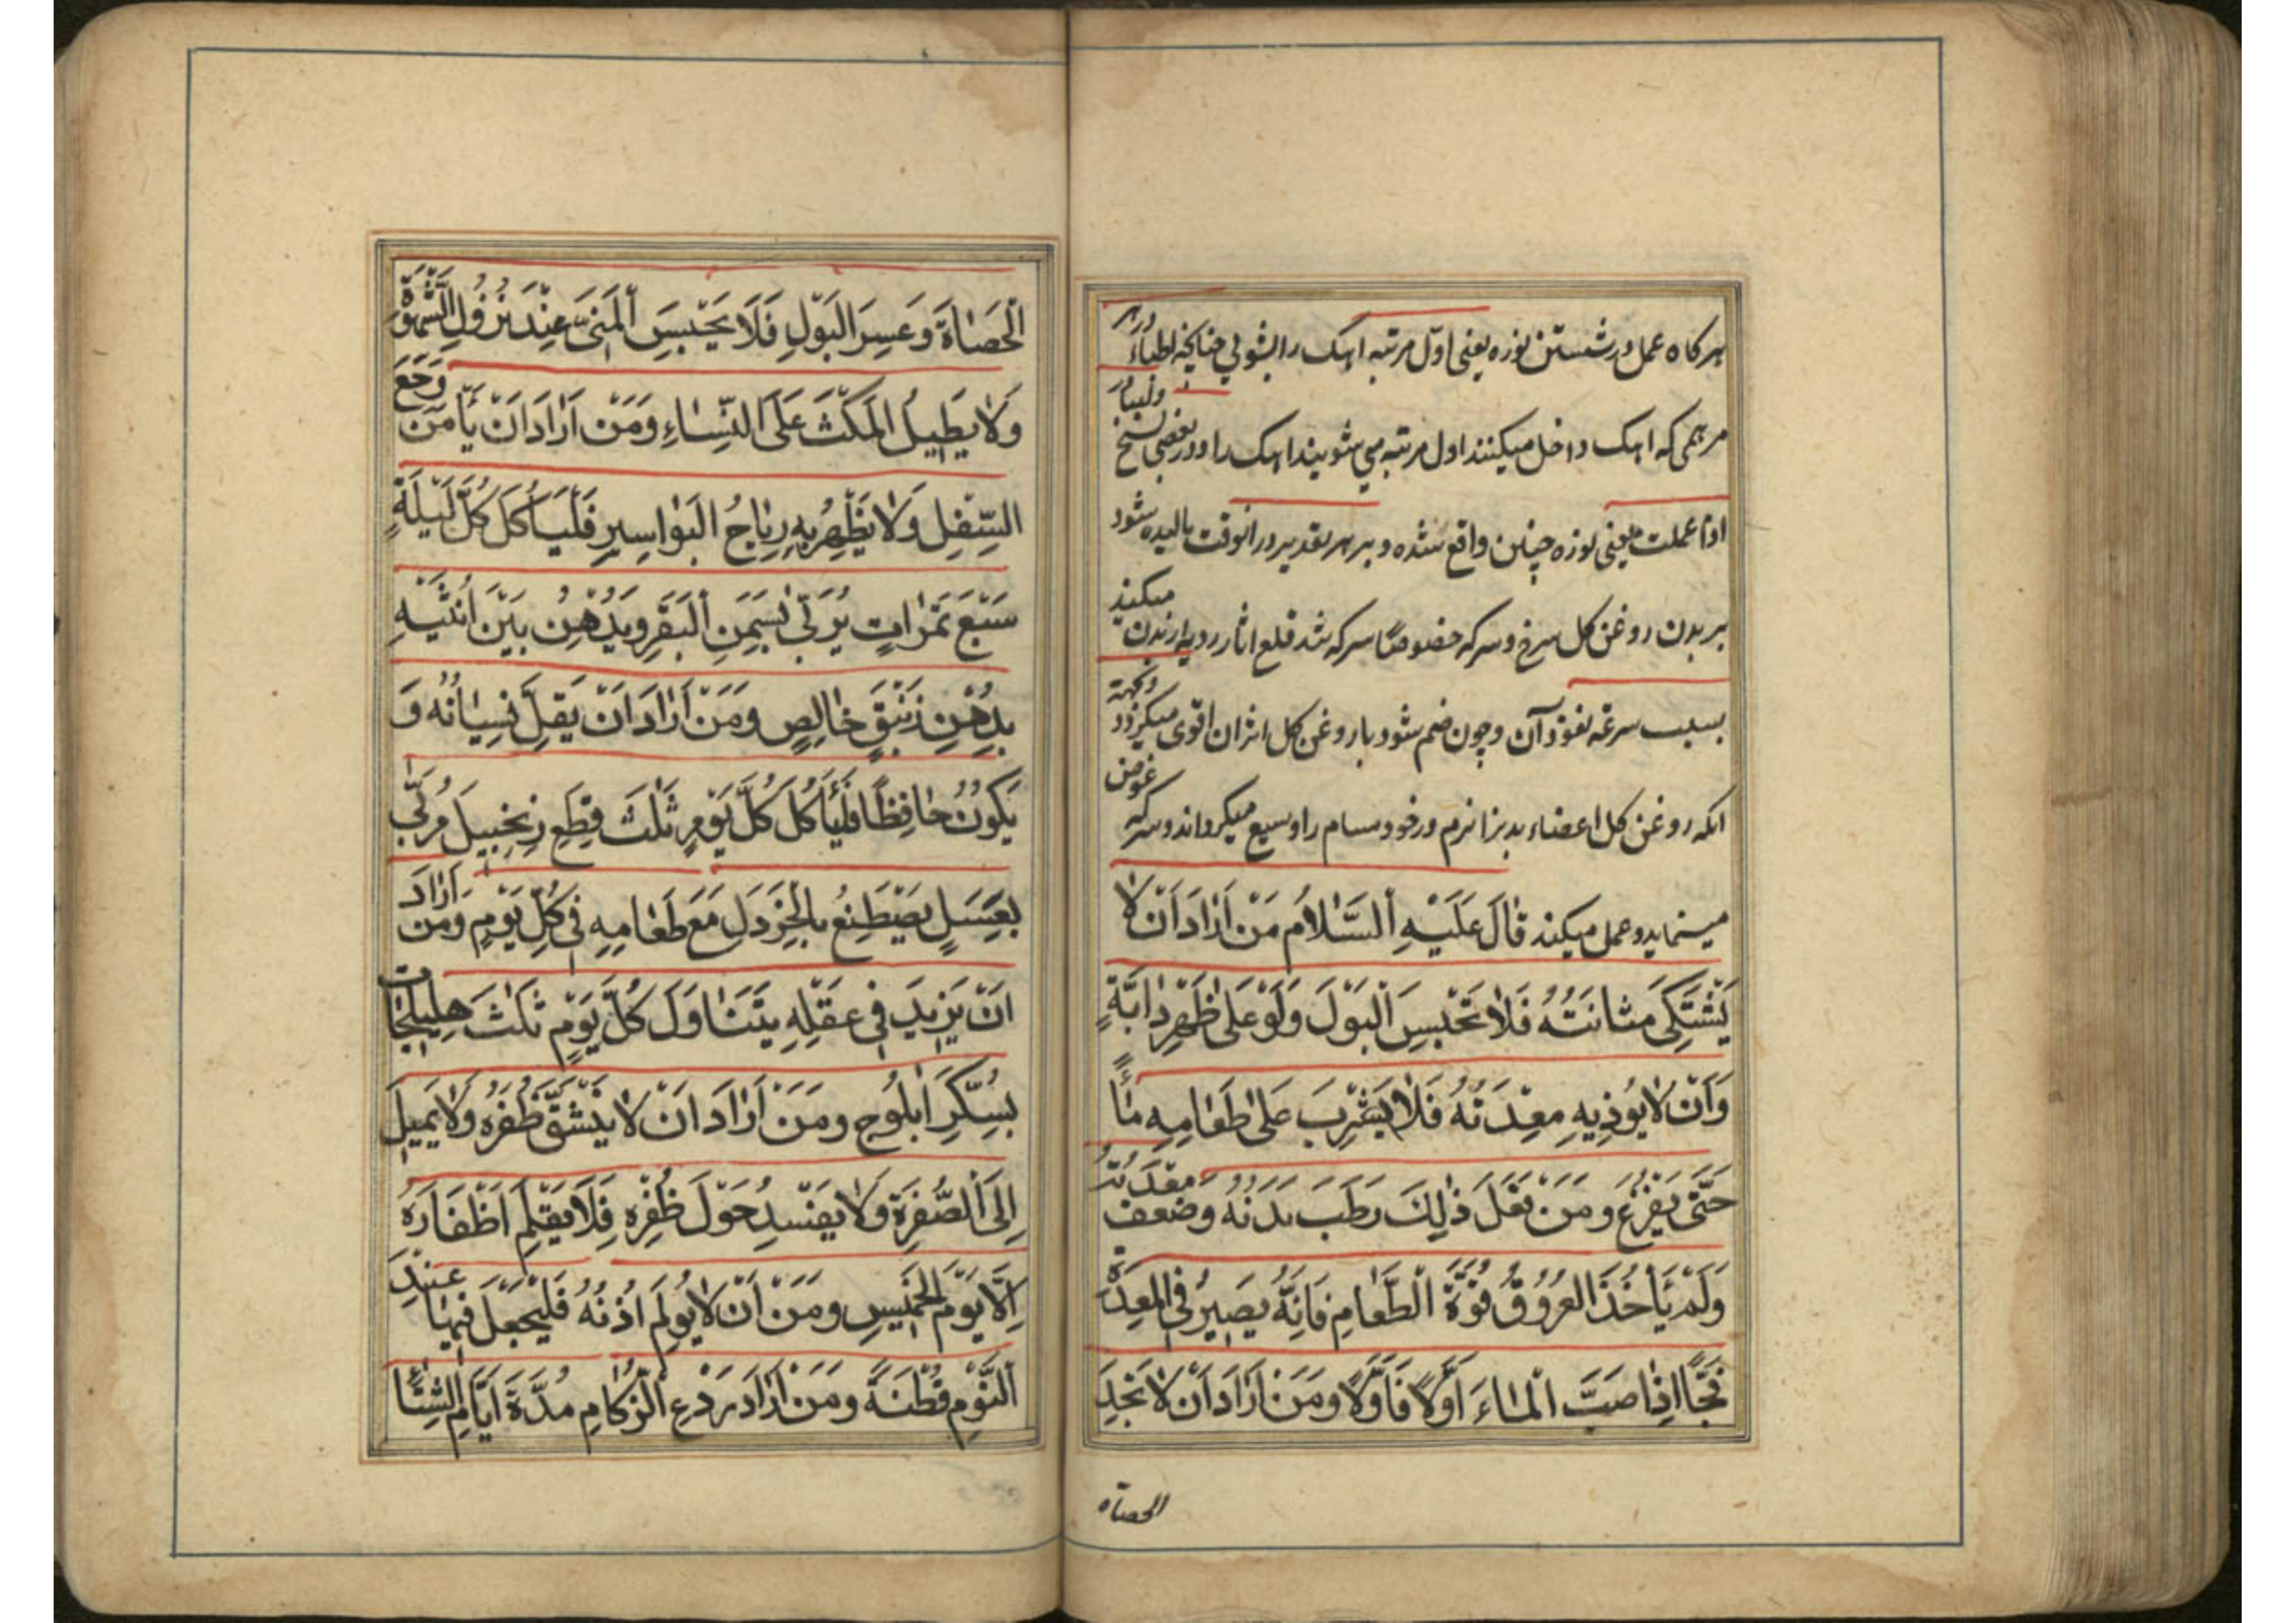 هرکاه عمل در شستن نوره یعنی اول مرتبه اهک را بشوئی چنانچه اطباء در هر
مرهمی که اهک داخل میکنند اول مرتبه می شویند اهک را و در بعضی نسخ ولیبدأ
اذا عملت یعنی نوره چنین واقع شده و بر هر تقدیر در انوقت بالیده شود
بر بدن روغن کل سرخ و سرکه خصوصا سرکه شد قلع اثار رویه از بدن میکند
بسبب سرعة نفوذ آن و چون ضم شود با روغن کل اثر ان اقوی میکردد وجهة
انکه روغن کل اعضاء بدنرا نرم ورخو و مسام را وسیع میکرداند و سرکه غوص
مینماید و عمل میکند قَالَ عَلَيْهِ اَلسَّلامُ مَنْ اَرَادَ اَنْ لا
يَشْتَكِىَ مَثانَتُهُ فَلاٰ تَحْبِسِ اَلْبَوْلَ وَلَوْ عَلىٰ ظَهْرِ دٰابَّةٍ
وَاَنْ لا يُوذِيهِ مِعْدَتُهُ فَلاٰ يَشْرِبَ عَلىٰ طَعٰامِهِ مٰاءً
حَتّٰى يَفْرُغَ وَمَنْ فَعَلَ ذٰلِكَ رَطَبَ بَدَنُهُ وَضَعَفَ مِعْدَتُهُ
وَلَمْ يَأخُذَ العُرُوقُ قُوَّةَ الْطَّعٰامِ فَاِنَّهُ يَصِيرُ فِى المِعْدَةِ
فَجًّا اِذٰا صَبَّ الْمٰاءَ اَوَّلًا فَاَوَّلًا وَمَنْ اَرٰادَ اَنْ لاٰ يَجِدَ
الحصاه
الْحَصٰاةَ وَعَسِرَ البَوْلِ فَلَا يَحْبِسَ اَلْمَنىَّ عِنْدَ نُزُولِ الشَّهْوَةِ
وَلاٰ يَطِيلُ المَكْثَ عَلَى النِّسٰاءِ وَمَنْ اَرٰادَ اَنْ يَأمَنَ وَجَعَ
السِّفْلِ وَلاٰ يَظْهِرُ بِهِ رِيٰاحُ البَوٰاسِيرِ فَلْيَأكُلَ كُلَّ لَيْلَةٍ
سَبْعَ تَمَرٰاتٍ يُرَبّٰى بسَمَنِ اَلْبَقَرِ وَيَدُهْنُ بَيْنَ اُنْثَيَيْهِ
بِدُهْنِ زَنْبَقٍ خٰالِصٍ وَمَنْ اَرٰادَ اَنْ يَقِلَّ نِسِيٰانُهُ وَ
يَكُونُ حٰافِظًا فَلْيَأكُلَ كُلَّ يَوْمٍ ثَلٰثَ قِطَعِ زَنْجَبِيلَ مُرَبّٰى
بِعَسَلٍ يَصْطَنِعُ بِالْخَرْدَلِ مَعَ طَعٰامِهِ فِى كُلِّ يَوْمٍ وَمَنْ اَرٰادَ
اَنْ يَزِيدَ فِى عَقْلِهِ يَتَنٰاوَلَ كُلَّ يَوْمٍ ثَلٰثَ هَلِيلَجٰاتٍ
بِسُكَّرِ اَبْلُوجٍ وَمَنْ اَرٰادَ اَنْ لاٰ يَنْشَقَّ ظُفْرُهُ وَلاٰ يَمِيلَ
اِلَى اَلصُّفْرَةِ وَلاٰ يَفْسِدُ حَوْلَ ظُفْرِهِ فَلَا يَقْلِمَ اَظْفَارَهُ
اِلَّا يَوْمَ الخَمِيسِ وَمَنْ اَنْ لاٰ يُولِمَ اُذْنُهُ فَلْيَجْعَلَ فِيهٰا عِنْدَ
اَلنَّوْمِ قُطْنَةً وَمَنْ اَرٰادَ رَدْعِ اَلْزُكٰامِ مُدَّةَ اَيّٰامِ الشِّتٰاءِ